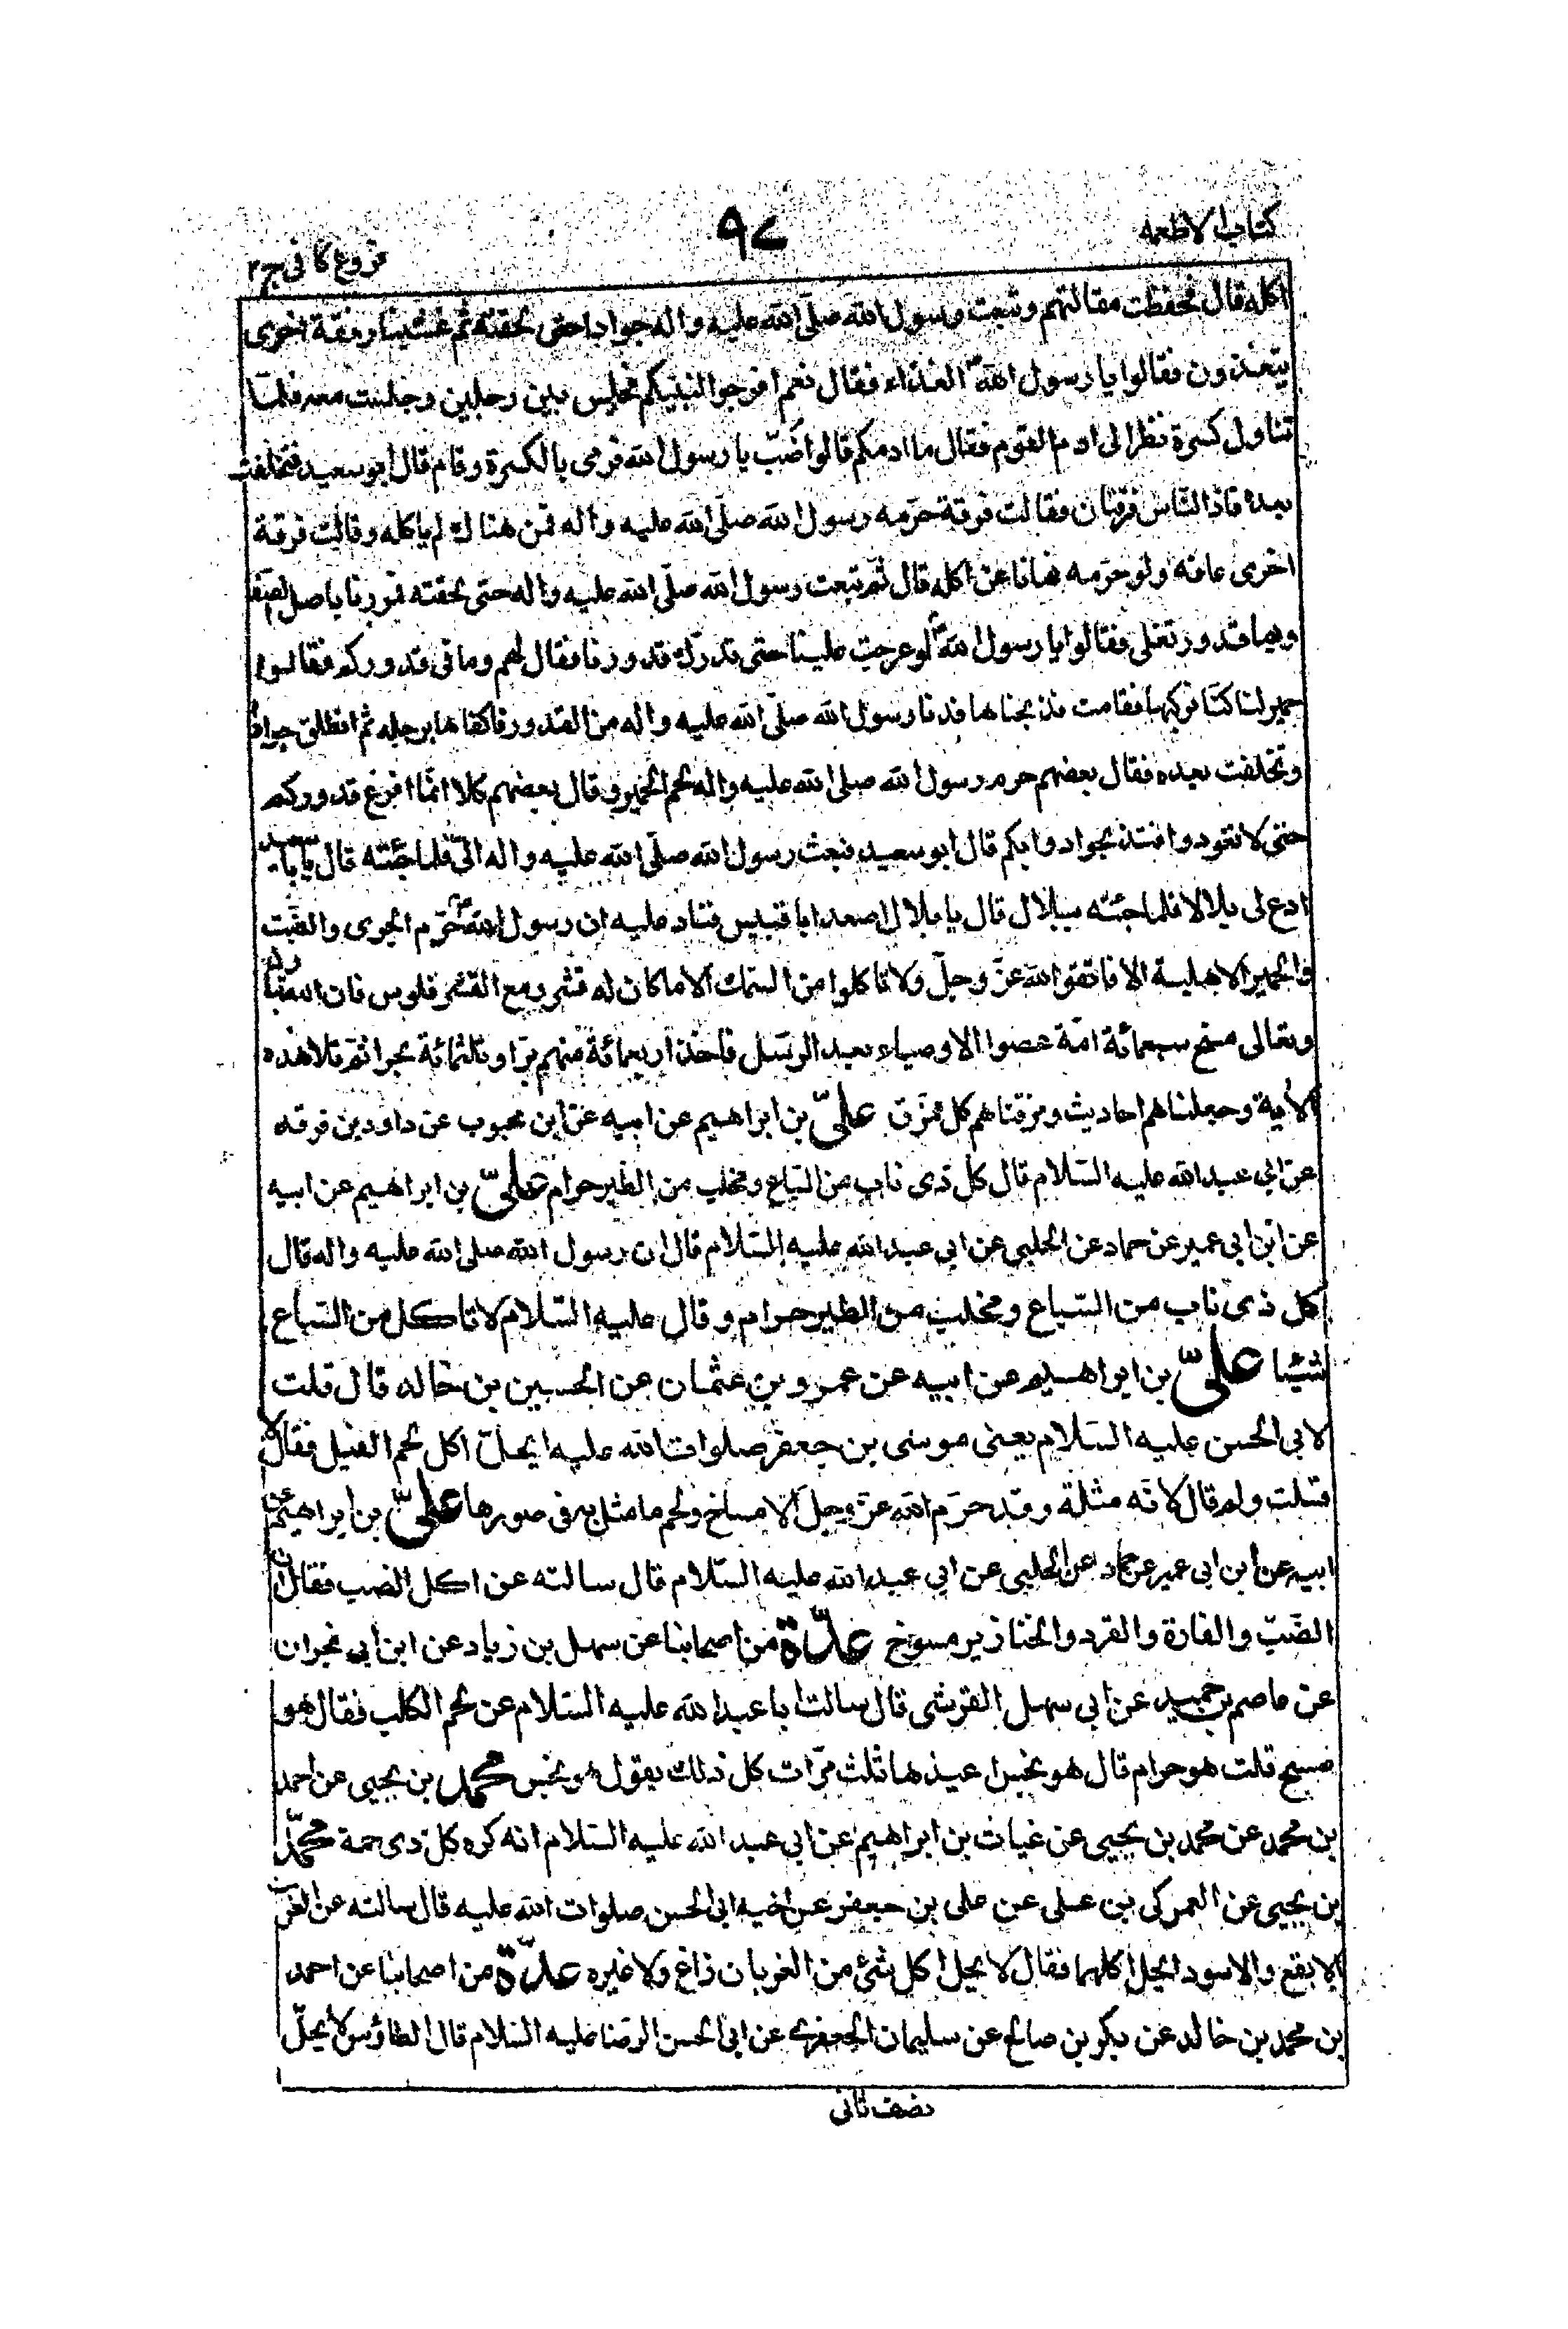 كتاب الاطعمه
٩٧
فروع كافى ج٢
اكله قال فحفظت مقالتهم وتبعت رسول الله صلّى الله عليه واله جوادا حتى لحقته ثم غشينا رفقة اخرى
يتغذون فقالوا يا رسول الله الغذاء فقال نعم افرجوا لنبيكم فجلس بين رجلين وجلست معه فلمّا
تناول كسرة نظر الى ادم القوم فقال ما ادمكم قالوا ضبّ يا رسول الله فرمى بالكسرة وقام قال ابو سعيد فتخلفت
بعده فاذا النّاس فرقتان فقالت فرقة حرّمه رسول الله صلّى الله عليه واله فمن هناك لم ياكله وقالت فرقة
اخرى عافه ولو حرّمه لنهانا عن اكله قال ثم تبعت رسول الله صلّى الله عليه واله حتى لحقته فمررنا باصل الصفا
وبها قدور تغلى فقالوا يا رسول الله لو عرجت علينا حتى تدرك قدورنا فقال لهم وما فى قدوركم فقالوا
حمير لنا كنّا نركبها فقامت فذبحناها فدنا رسول الله صلّى الله عليه واله من القدور فاكفاها برجله ثم انطلق جوادا
وتخلفت بعده فقال بعضهم حرم رسول الله صلى الله عليه واله لحم الحمير وقال بعضهم كلا انّما افرغ قدوركم
حتى لا تعودوا فتذبحوا دوابكم قال ابو سعيد فبعث رسول الله صلّى الله عليه واله الىّ فلما جئته قال يا با سعيد
ادع لى بلالا فلما جئته ببلال قال يا بلال اصعد ابا قبيس فناد عليه ان رسول الله حرّم الجرى والضّب
والحمير الاهلية الا فاتقوا الله عزّ وجلّ ولا تاكلوا من السّمك الّا ما كان له قشر ومع القشر فلوس فان الله تبارك
وتعالى مسخ سبعمائة امّة عصوا الاوصياء بعد الرسل فاخذ اربعمائة منهم برّا وثلثمائة بحرا ثم تلا هذه
الاية وجعلناهم احاديث ومزقناهم كل ممزّق علىّ بن ابراهيم عن ابيه عن ابن محبوب عن داود بن فرقد
عن ابى عبد الله عليه السّلام قال كل ذى ناب من السّباع ومخلب من الطير حرام علىّ بن ابراهيم عن ابيه
عن ابن ابى عمير عن حماد عن الحلبى عن ابى عبد الله عليه السّلام قال ان رسول الله صلى الله عليه واله قال
كل ذى ناب من السّباع ومخلب من الطير حرام وقال عليه السّلام لا تاكل من السّباع
شيئا علىّ بن ابراهيم عن ابيه عن عمرو بن عثمان عن الحسين بن خالد قال قلت
لابى الحسن عليه السّلام يعنى موسى بن جعفر صلوات الله عليه ايحلّ اكل لحم الفيل فقال لا
فقلت ولم قال لانّه مثلة وقد حرّم الله عزّ وجلّ الامساخ ولحم ما مثل به فى صورها علىّ بن ابراهيم عن
ابيه عن ابن ابى عمير عن حماد عن الحلبى عن ابى عبد الله عليه السّلام قال سالته عن اكل الضب فقال انّ
الضّبّ والفارة والقرد والخنازير مسوخ عدّة من اصحابنا عن سهل بن زياد عن ابن ابى نجران
عن عاصم بن حميد عن ابى سهل القرشى قال سالت ابا عبد الله عليه السّلام عن لحم الكلب فقال هو
مسخ قلت هو حرام قال هو نجس اعيذها ثلث مرّات كل ذلك يقول هو نجس محمد بن يحيى عن احمد
بن محمد عن محمد بن يحيى عن غياث بن ابراهيم عن ابى عبد الله عليه السّلام انه كره كل ذى حمة محمّد
بن يحيى عن العمركى بن على عن على بن جعفر عن اخيه ابى الحسن صلوات الله عليه قال سالته عن الغراب
الابقع والاسود ايحل اكلهما فقال لا يحل اكل شئ من الغربان زاغ ولا غيره عدّة من اصحابنا عن احمد
بن محمد بن خالد عن بكر بن صالح عن سليمان الجعفرى عن ابى الحسن الرضا عليه السّلام قال الطاؤس لا يحلّ
نصف ثانى